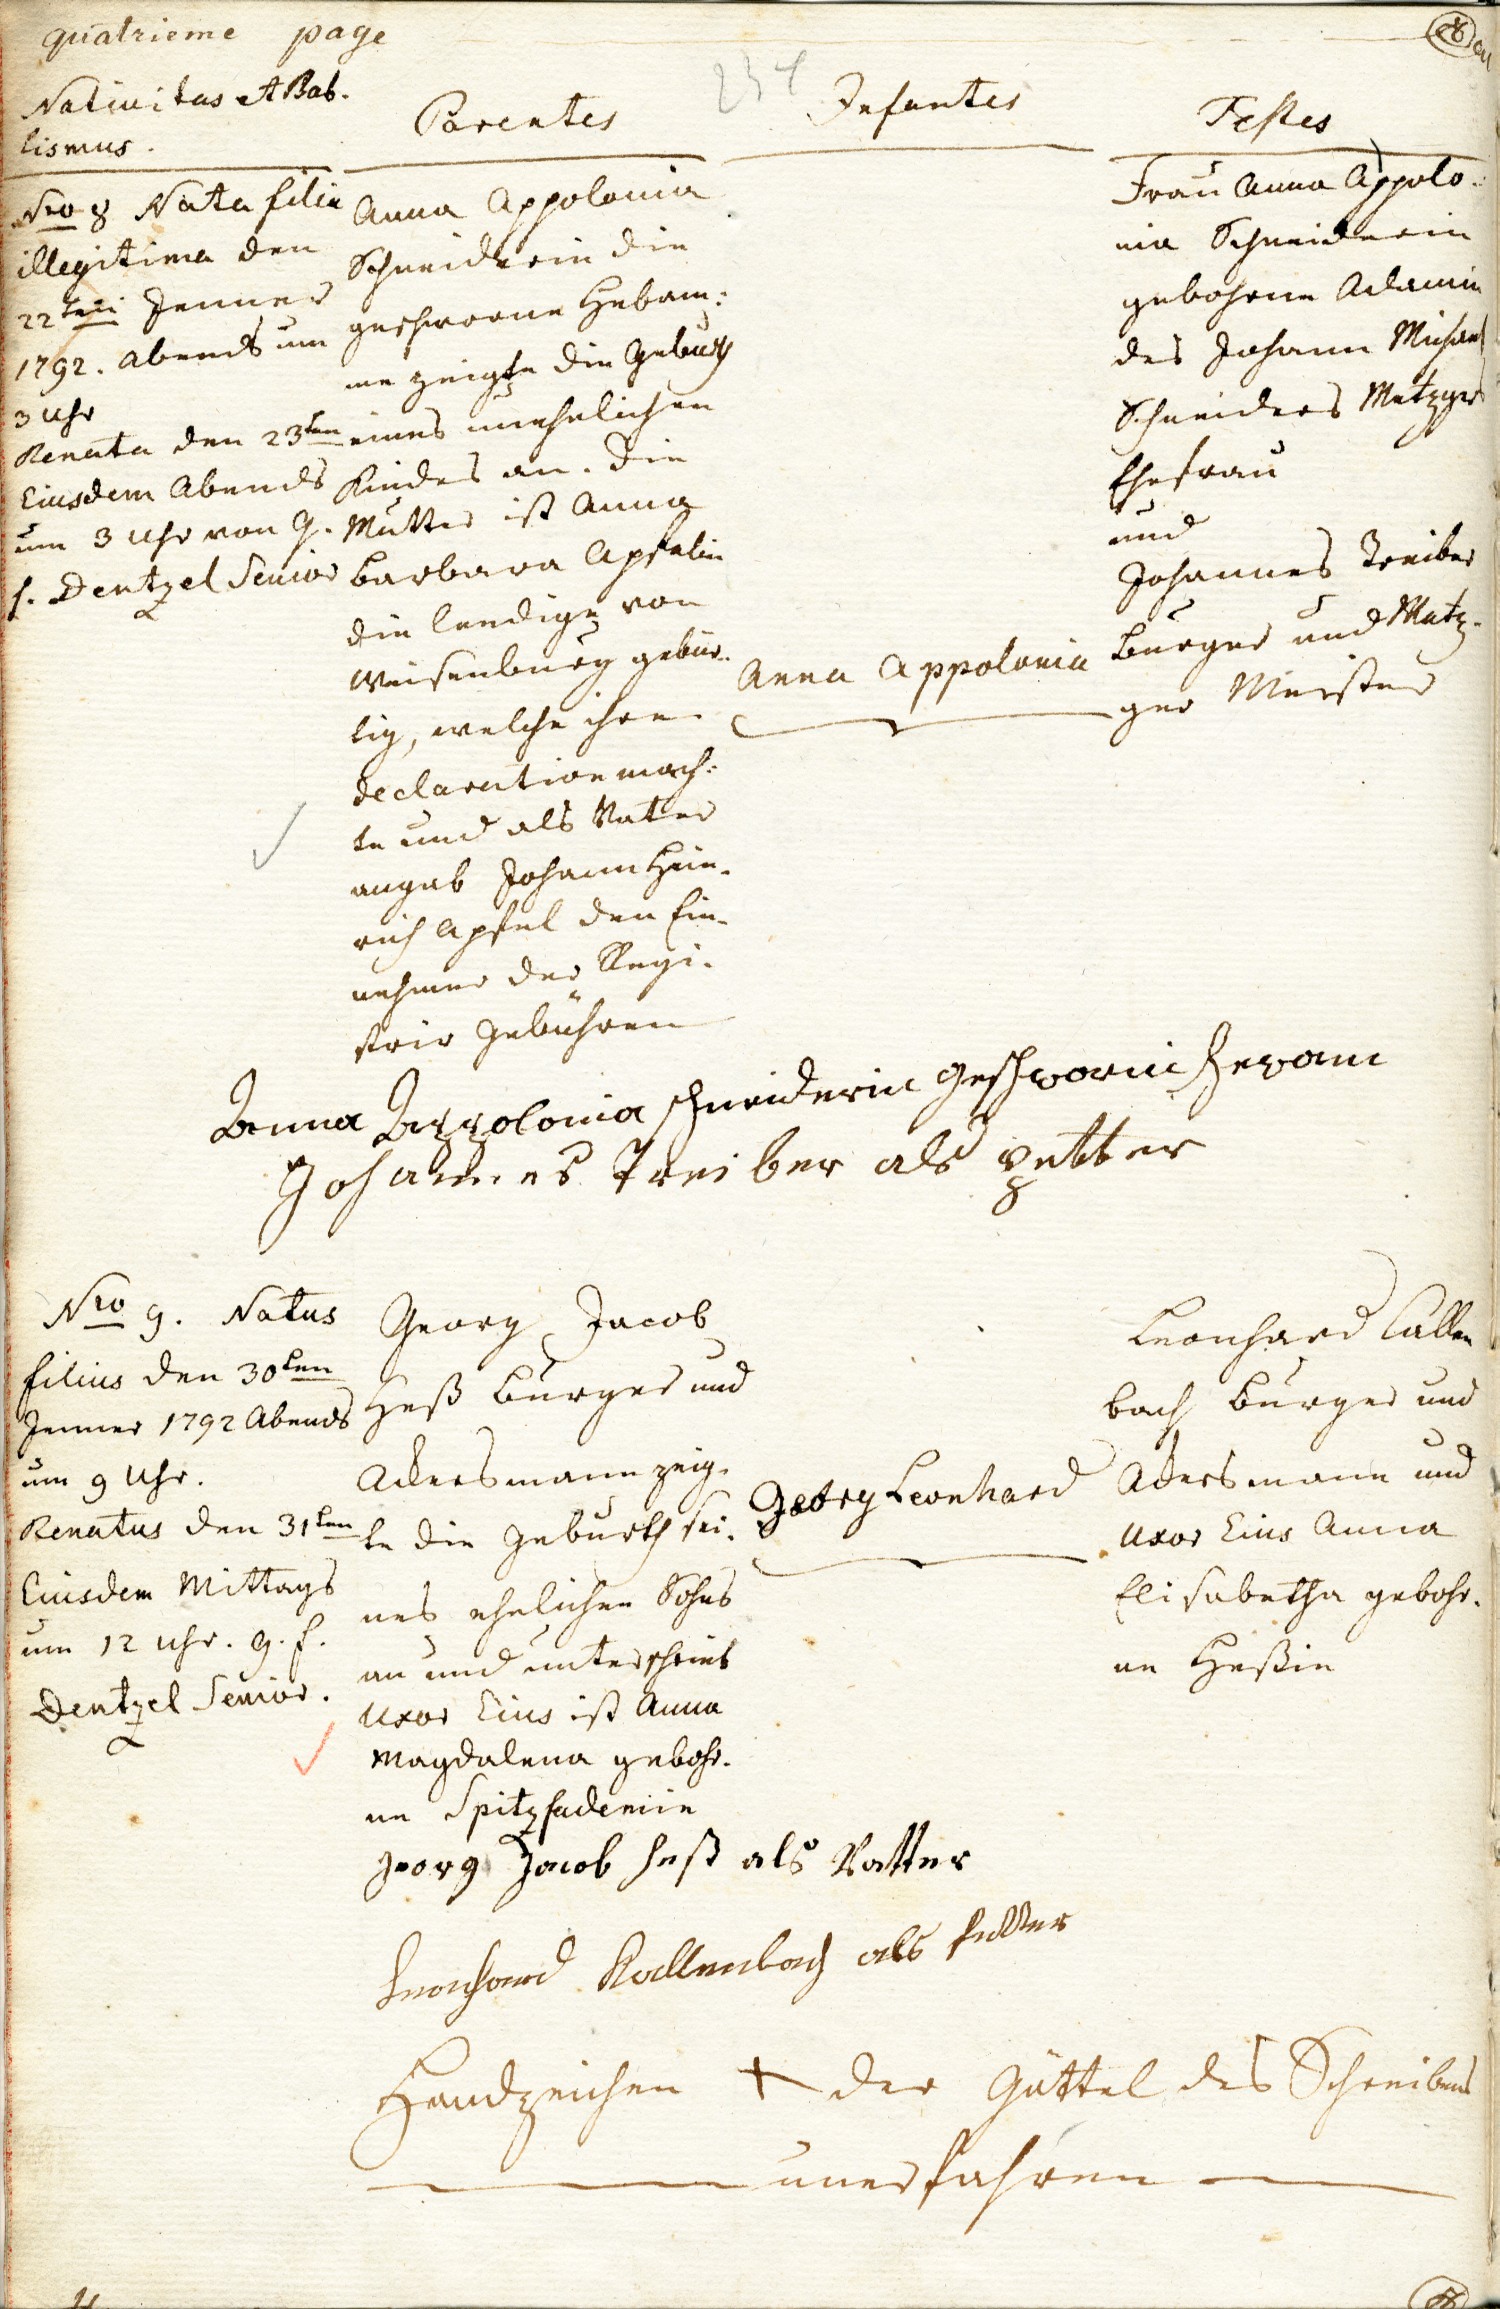 quatrieme page
Nativitas et Bab-
tismus.
Parentes
Infantes
Testes
Nro 8 Nata filia
illegitima den
22ten Jenner
1792. Abends um
3 Uhr
Renata den 23ten
Eiusdem Abends
um 3 Uhr von G.
f. Dentzel Senior
Anna Appolonia
Schneiderin die
geschworne Hebam:
me zeigte die Geburth
eines unehelichen
Kindes an. Die
Mutter ist Anna
Barbara Apfelin
die leedige von
Weisenburg gebür-
tig, welche ihre
declaration mach:
te und als Vater
angab Johann Hein-
rich Apfel den Ein-
nehmer der Regi-
strir Gebühren
Anna Appolonia
Frau Anna Appolo-
nia Schneiderin
gebohrne Adamin
des Johann Michael
Schneiders Metzgers
Ehefrau
und
Johannes Treiber
Burger und Metz-
ger Meister
Anna Appolonia schneiderin geschworni hevam
Johannes Treiber als petter
Nro 9. Natus
filius den 30ten
Jenner 1792 Abends
um 9 Uhr.
Renatus den 31ten
Eiusdem Mittags
um 12 Uhr. G. f.
Dentzel Senior.
Georg Jacob
Heß Burger und
Ackersmann zeig-
te die Geburth sei-
nes ehelichen Sohns
an und unterschrieb
Uxor Eius ist Anna
Magdalena gebohr-
ne Spitzfademin
Georg Leonhard
Leonhard Callen
bach Burger und
Ackersmann und
Uxor Eius Anna
Elisabetha gebohr-
ne Heßin
georg Jacob heß als Vatter
Leonhard Kallenbach als petter
Handzeichen + der Göttel des Schreibens
unerfahren